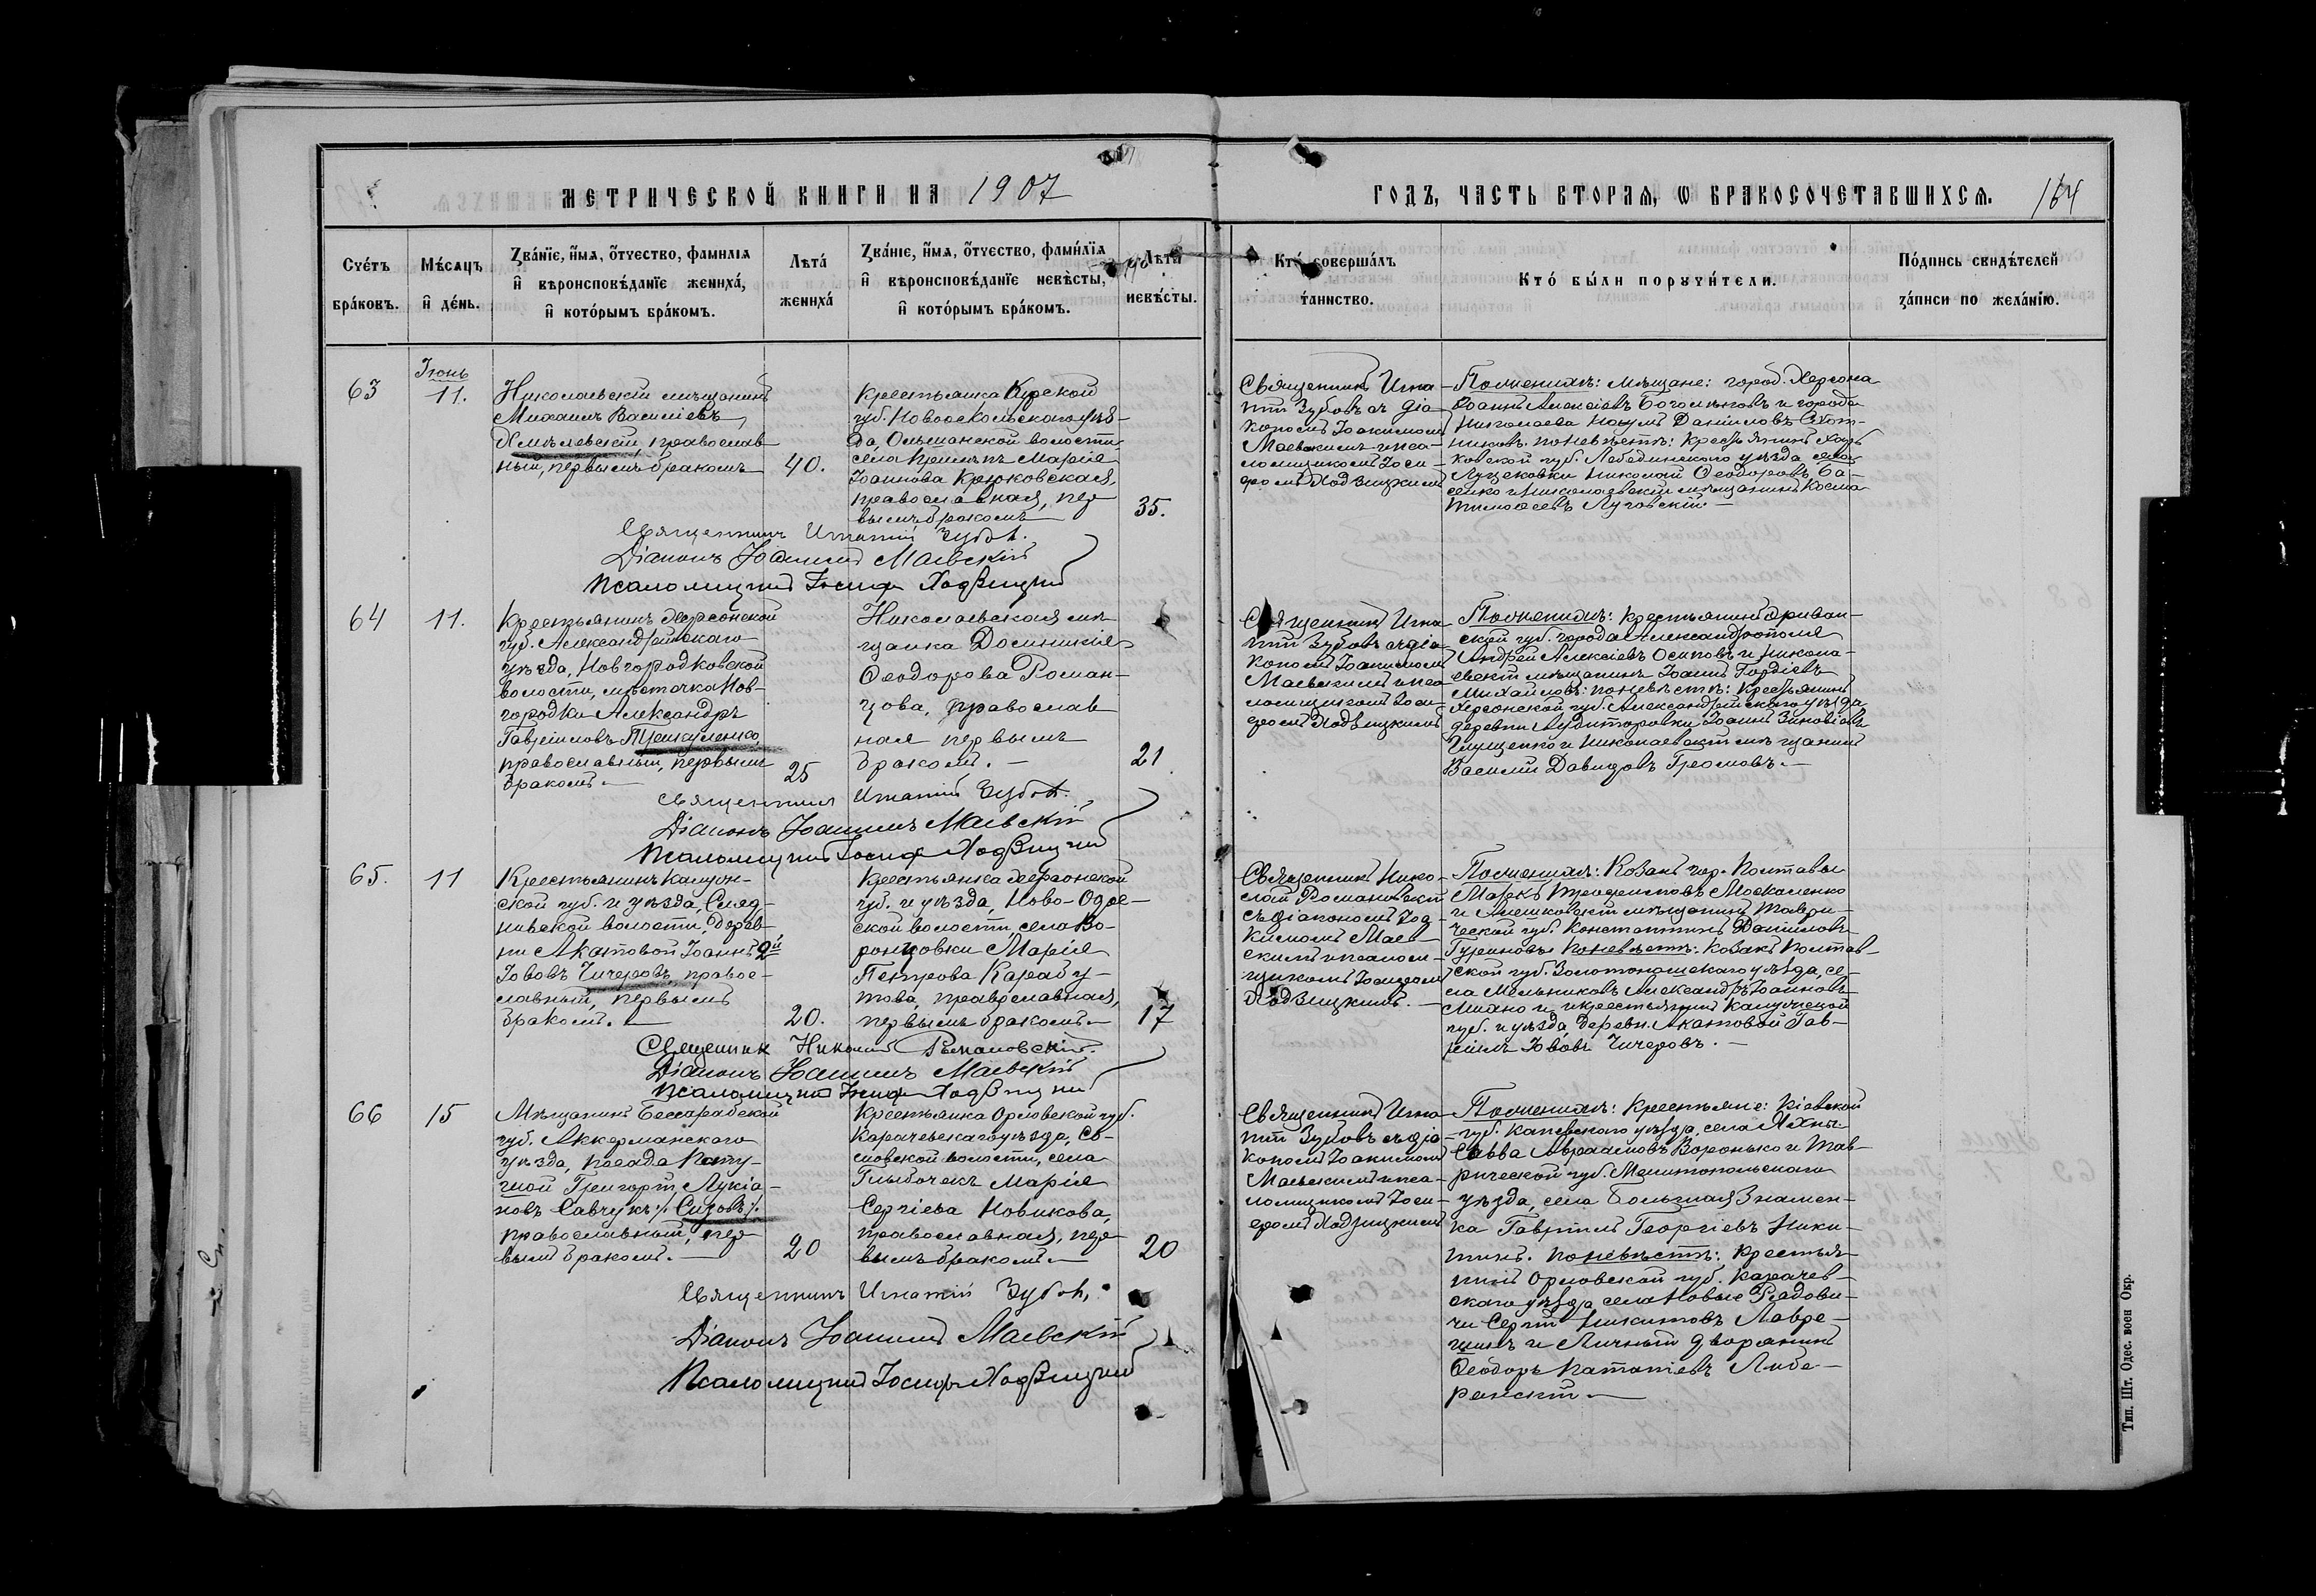 МЕТРИЧЕСКОЙ КНИГИ НА 1907
ГОДЪ, ЧАСТЬ ВТОРАЯ, Ѡ БРАКОСОЧЕТАВШИХСЯ.
164
Счетъ браковъ.
Мѣсяцъ и день.
Званіе, имя, отчество, фамилія
и вѣроисповѣданіе жениха,
и которымъ бракомъ.
Лѣта
жениха
Званіе, имя, отчество, фамилія
и вѣроисповѣданіе невѣсты,
и которымъ бракомъ.
Лѣта
невѣсты.
Кто совершалъ
таинство.
Кто были поручители.
Подпись свидѣтелей
записи по желанію.
63
Іюнь
11.
Николаевскій мѣщанинъ
Михаилъ Василіевъ
Хмѣлевскій, православ-
ный, первымъ бракомъ
40.
Крестьянка Курской
губ. Новооскольскаго уѣз-
да, Ольшанской волости,
села Марія
Іоаннова Крюковская,
православная, пер-
вымъ бракомъ
35.
Священникъ Игна-
тій Зубовъ съ діа-
кономъ Іоакимомъ
Маевскимъ и пса-
ломщикомъ Іоси-
фомъ Ходзицкимъ
По женихѣ: мѣщане: город. Херсона
Іоаннъ Алексіевъ Богомяковъ и города
Николаева Наумъ Даниловъ
по невѣстѣ: крестьянинъ Харь
ковской губ. Лебединскаго уѣзда села
Николай Ѳеодоровъ Ба-
сенко и Николаевскій мѣщанинъ Косма
Тимоѳеевъ Луговскій. —
Священникъ Игнатій Зубовъ.
Діаконъ Іоакимъ Маевскій
Псаломщикъ Іосифъ Ходзицкій
64
11.
Крестьянинъ Херсонской
губ. Александрійскаго
уѣзда, Новгородковской
волости, мѣстечка Нов-
городки Александръ
Гавріиловъ
православный, первымъ
бракомъ. —
25
Николаевская мѣ-
щанка Домникія
Ѳеодорова Роман-
цова, православ
ная первымъ
бракомъ. —
21
Священникъ Игна
тій Зубовъ съ діа-
кономъ Іоакимомъ
Маевскимъ и пса-
ломщикомъ Іоси-
фомъ Ходзицкимъ
По женихѣ: крестьянинъ Эриван-
ской губ. города Александрополя
Андрей Алексіевъ Осиповъ и Никола-
евскій мѣщанинъ Іоаннъ Гордіевъ
Михайловъ: по невѣстѣ: крестьянинъ
Херсонской губ. Александрійскаго уѣзда
деревни Аудиторовки Іоаннъ Зиновіевъ
и Николаевскій мѣщанинъ
Василій Давидовъ Громовъ. —
Священникъ Игнатій Зубовъ.
Діаконъ Іоакимъ Маевскій
Псаломщикъ Іосифъ Ходзицкій
65.
11
Крестьянинъ Калуж-
ской губ. и уѣзда, Спод-
невской волости, дерев-
ни Акатовой Іоаннъ 2й
Іововъ Чичеровъ, право-
славный, первымъ
бракомъ. —
20.
Крестьянка Херсонской
губ. и уѣзда, Ново-Одес-
ской волости, села Во-
ронцовки Марія
Петрова Карабу-
това, православная,
первымъ бракомъ. —
17
Священникъ Нико-
лай Романовскій
съ діакономъ Іоа-
кимомъ Маев-
скимъ и псалом-
щикомъ Іосифомъ
Ходзицкимъ. —
По женихѣ: Козакъ гор. Полтавы
Маркъ Трофимовъ Москаленко
и Алешковскій мѣщанинъ Таври-
ческой губ. Константинъ Даниловъ
По невѣстѣ: козакъ Полтав-
ской губ. Золотоношскаго уѣзда, се-
ла Мельниковъ Александръ Іоанновъ
и крестьянинъ Калужской
губ. и уѣзда, деревн. Акатовой Гав-
ріилъ Іововъ Чичеровъ. —
Священникъ Николай Романовскій.
Діаконъ Іоакимъ Маевскій
Псаломщикъ Іосифъ Ходзицкій
66
15
Мѣщанинъ Бессарабской
губ. Аккерманскаго
уѣзда, посада Пату-
Григорій Лукіа-
новъ Савчукъ /: Сизовъ :/
православный, пер
вымъ бракомъ. —
20
Крестьянка Орловской губ.
Карачевскаго уѣзда,
волости, села
Глыбочекъ Марія
Сергіева Новикова,
православная, пер-
вымъ бракомъ. —
20
Священникъ Игна-
тій Зубовъ съ діа-
кономъ Іоакимомъ
Маевскимъ и пса-
ломщикомъ Іоси-
фомъ Ходзицкимъ
По женихѣ: Крестьяне: Кіевской
губ. Каневскаго уѣзда, села
Савва Авраамовъ Воронько и Тав-
рической губ. Мелитопольскаго
уѣзда, села Большая Знамен-
ка Гавріилъ Георгіевъ Ники-
тинъ. По невѣстѣ: крестья-
нинъ Орловской губ. Карачев-
скаго уѣзда села Новые Рядови-
чи Сергій Никитовъ Лавре-
и Личный дворянинъ
Ѳеодоръ Либе-
ранскій —
Священникъ Игнатій Зубовъ.
Діаконъ Іоакимъ Маевскій
Псаломщикъ Іосифъ Ходзицкій
Тип. Шт. Одес. воен Окр.